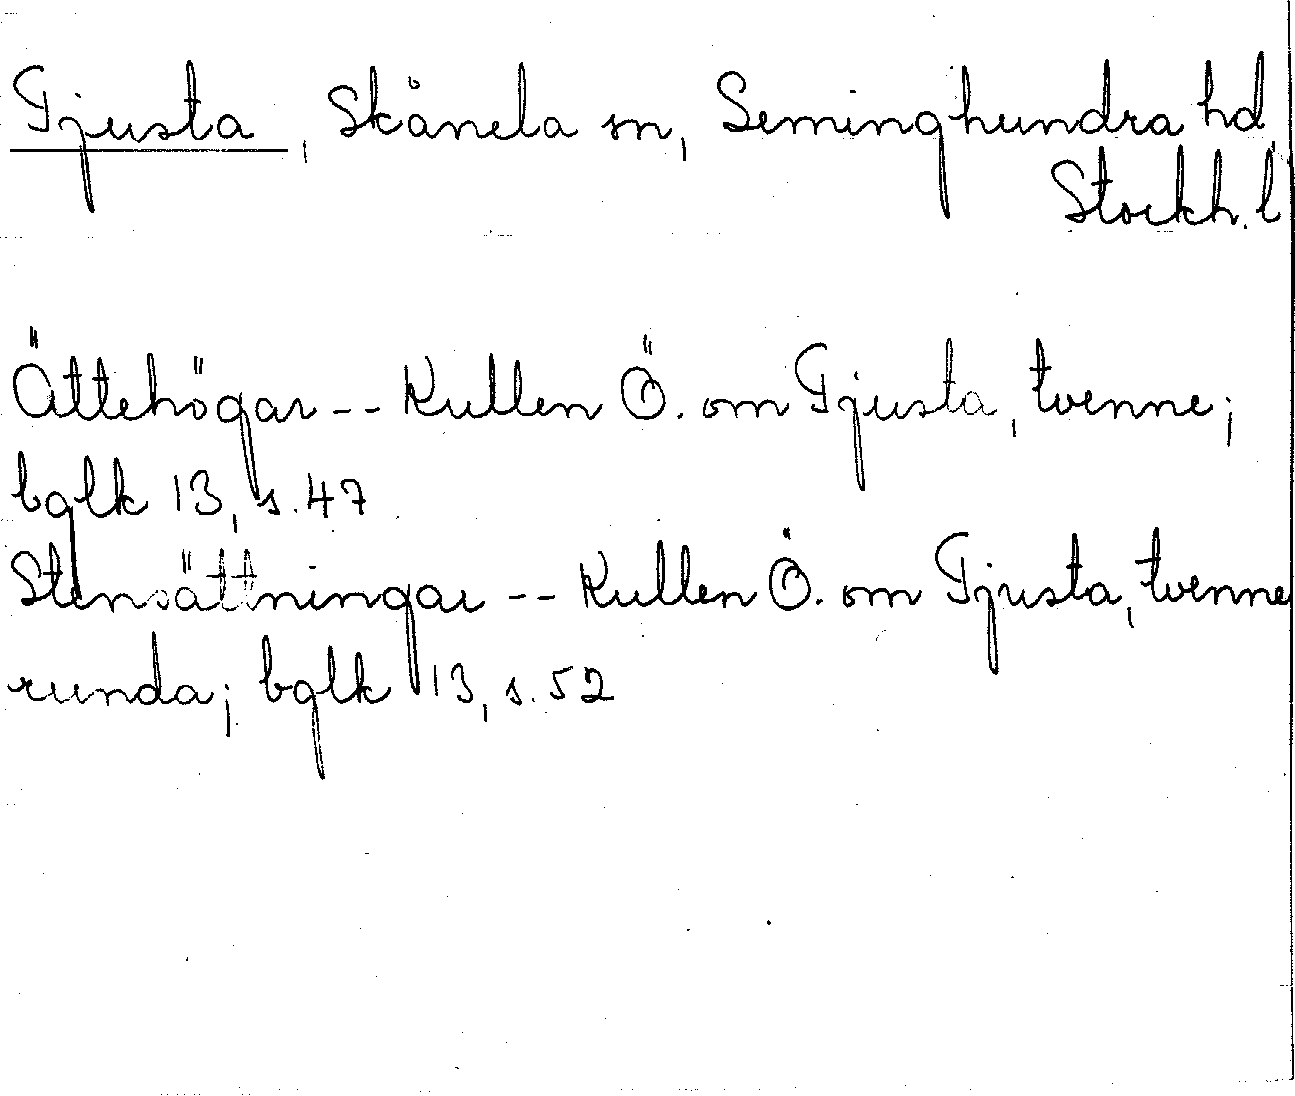 Tjusta, Skånela sn, Seminghundra hd,
Stockh. l
Ättehögar -- Kullen Ö. om Tjusta, tvenne;
bglk 13, s. 47
Stensättningar -- Kullen Ö. om Tjusta, tvenne
runda; bglk 13, s. 52